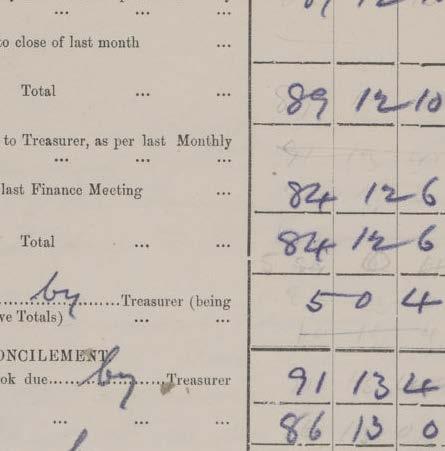 ... ... ...
to close of last month ...
Total ... ... 89 12 10
to Treasurer, as per last Monthly
... ... ...
last Finance Meeting ... 84 12 6
Total ... ... 84 12 6
by Treasurer (being 5 0 4
ve Totals) ... ...
ONCILEMENT
ok due by Treasurer 91 13 4
... ... ... 86 13 0